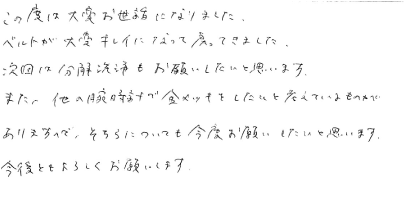 この度は大変お世話になりました。
ベルトが大変キレイになって戻ってきました。
次回は分解洗浄もお願いしたいと思います。
また、他の腕時計で金メッキをしたいと考えているものが
ありますので、そちらについても今度お願いしたいと思います。
今後ともよろしくお願いします。